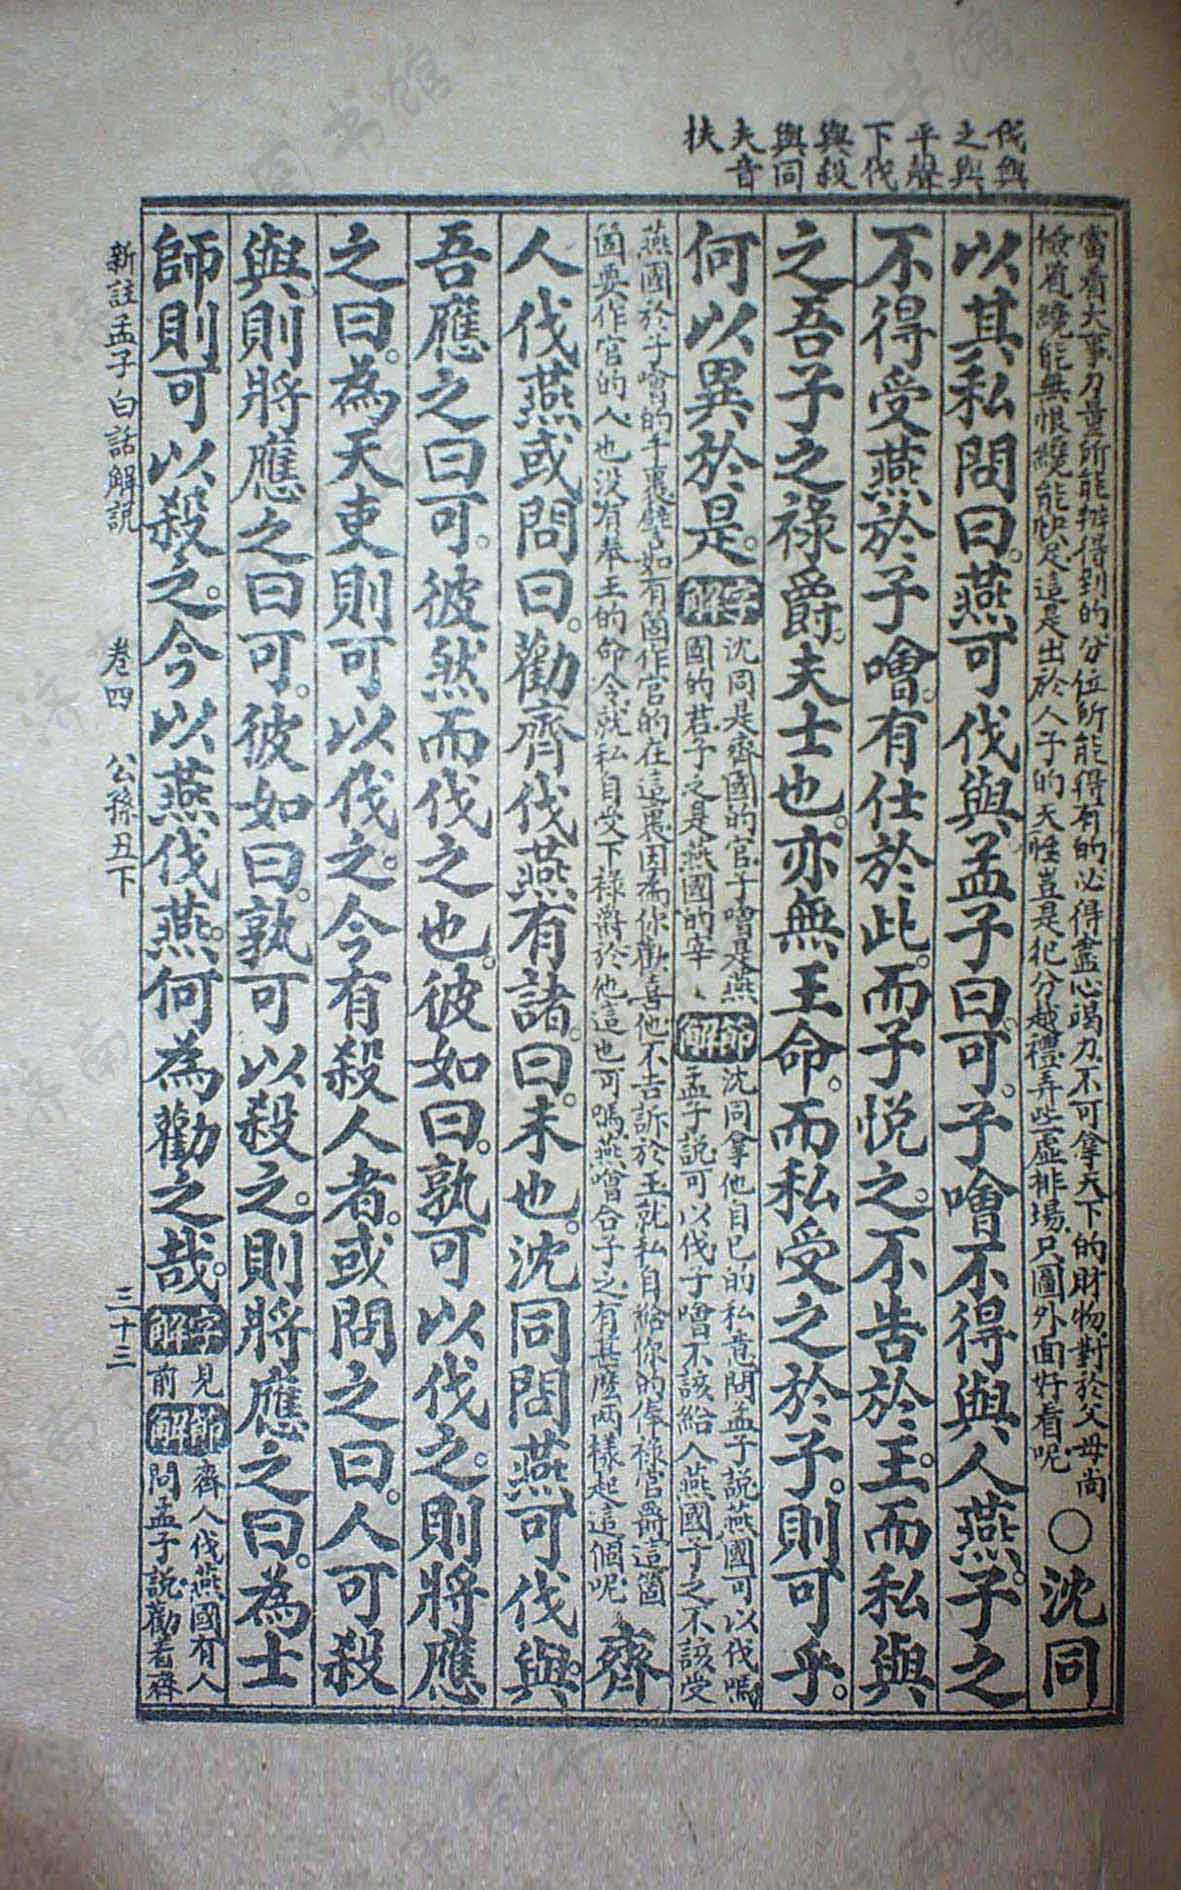 伐與
之與
平聲
下伐
與殺
與同
夫音
扶
當看大事力量所能辦得到的分位所能得有的必得盡心竭力不可拿天下的財物對於父母尚
儉省纔能無恨纔能快足這是出於人子的天性豈是犯分越禮弄些虛排場只圖外面好看呢
○沈同
以其私問曰。燕可伐與。孟子曰。可。子噲不得與人燕。子之
不得受燕於子噲。有仕於此。而子悅之。不告於王。而私與
之吾子之祿爵。夫士也。亦無王命。而私受之於子。則可乎。
何以異於是。
字解
沈同是齊國的官子噲是燕
國的君子之是燕國的宰
節解
沈同拿他自己的私意問孟子說燕國可以伐嗎
孟子說可以伐子噲不該給人燕國子之不該受
燕國於子噲的手裏譬如有箇作官的在這裏因為你歡喜他不告訴於王就私自給你的俸祿官爵這箇
箇要作官的人也沒有奉王的命令就私自受下祿爵於他這也可嗎燕噲合子之有甚麼兩樣起這個呢
齊
人伐燕。或問曰。勸齊伐燕有諸。曰。未也。沈同問燕可伐與。
吾應之曰可。彼然而伐之也。彼如曰。孰可以伐之。則將應
之曰。為天吏則可以伐之。今有殺人者。或問之曰。人可殺
與。則將應之曰可。彼如曰。孰可以殺之。則將應之曰。為士
師則可以殺之。今以燕伐燕。何為勸之哉。
字解
見
前
節解
齊人伐燕國有人
問孟子說勸着齊
新註孟子白話解說　卷四　公孫丑下　三十三